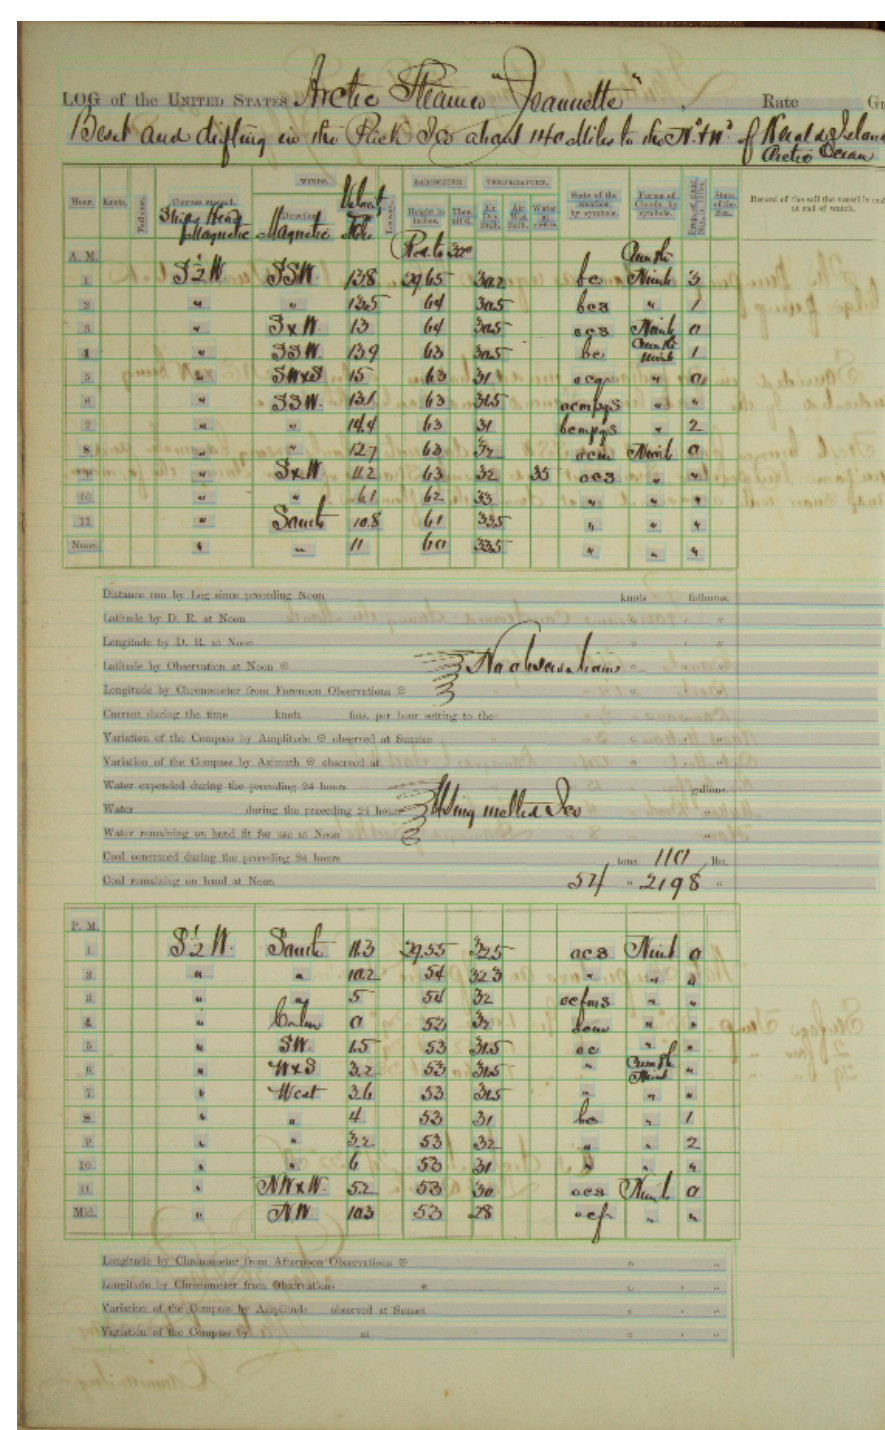 LOG of the UNITED STATES Arctic Steamer "Jeannette", Rate
Beset and drifting in the Pack Ice about 140 Miles to the Nd & Wd of Herald Island
Arctic Ocean
WINDS. BAROMETER TEMPERATURE.
Hour. Knots. Fathoms. Course steered. Direction Velocity Leeway. Height in inches. Ther. Att'd. Air Dry Bulb. Air Wet Bulb. Water State of the weather by symbols. Forms of Clouds by symbols. State of the Sea. Record of the sail the vessel is under at end of watch.
Ships Head Magnetic Magnetic
A. M. Cum Str
1 S½W. SSW. 13.8 29.65 30.2 bc Nimb 3
2 " " 13.5 64 30.5 bcs " 1
3 " SxW. 13 64 30.5 ocs Nimb 0
4 " SSW. 13.9 63 30.5 bc Cum Str Nimb 1
5 " SWxS 15 63 31 ocqs " 0
6 " SSW. 13.1 63 31.5 ocmpqs " "
7 " " 14.4 63 31 bcmpqs " 2
8 " " 12.7 63 32 ocm Nimb 0
9 " SxW. 11.2 63 32 35 ocs " "
10 " " 6.1 62 33 " " "
11 " South 10.8 61 33.5 " " "
Noon " " 11 60 33.5 " " "
Distance run by Log since preceding Noon knots fathoms.
Latitude by D. R. at Noon ° ' "
Longitude by D. R. at Noon ° ' "
Latitude by Observation at Noon ⊙ No observations ° ' "
Longitude by Chronometer from Forenoon Observations ⊙ ° ' "
Current during the time knots fms. per hour setting to the
Variation of the Compass by Amplitude ⊙ observed at Sunrise ° ' "
Variation of the Compass by Azimuth ⊙ observed at ° ' "
Water expended during the preceding 24 hours gallons.
Water during the preceding 24 hours Using melted Ice "
Water remaining on hand fit for use at Noon "
Coal consumed during the preceding 24 hours tons 110 lbs.
Coal remaining on hand at Noon 54 " 2198 "
P. M.
1 S½W. South 11.3 29.55 32.5 ocs Nimb 0
2 " " 10.2 54 32.3 " " "
3 " " 5 54 32 ocfms " "
4 " Calm 0 52 32 " "
5 " SW. 1.5 53 31.5 oc " "
6 " WxS 3.2 53 31.5 " Cum Str Nimb "
7 " West 3.6 53 31.5 " " "
8 " " 4 53 31 bc " 1
9 " " 3.2 53 32 " " 2
10 " " 6 53 31 " " "
11 " NWxW. 5.2 53 30 ocs Nimb 0
Mid. " NW. 10.3 53 28 ocf " "
Longitude by Chronometer from Afternoon Observations ⊙ ° ' "
Longitude by Chronometer from Observations ° ' "
Variation of the Compass by Amplitude observed at Sunset ° ' "
Variation of the Compass by at ° ' "